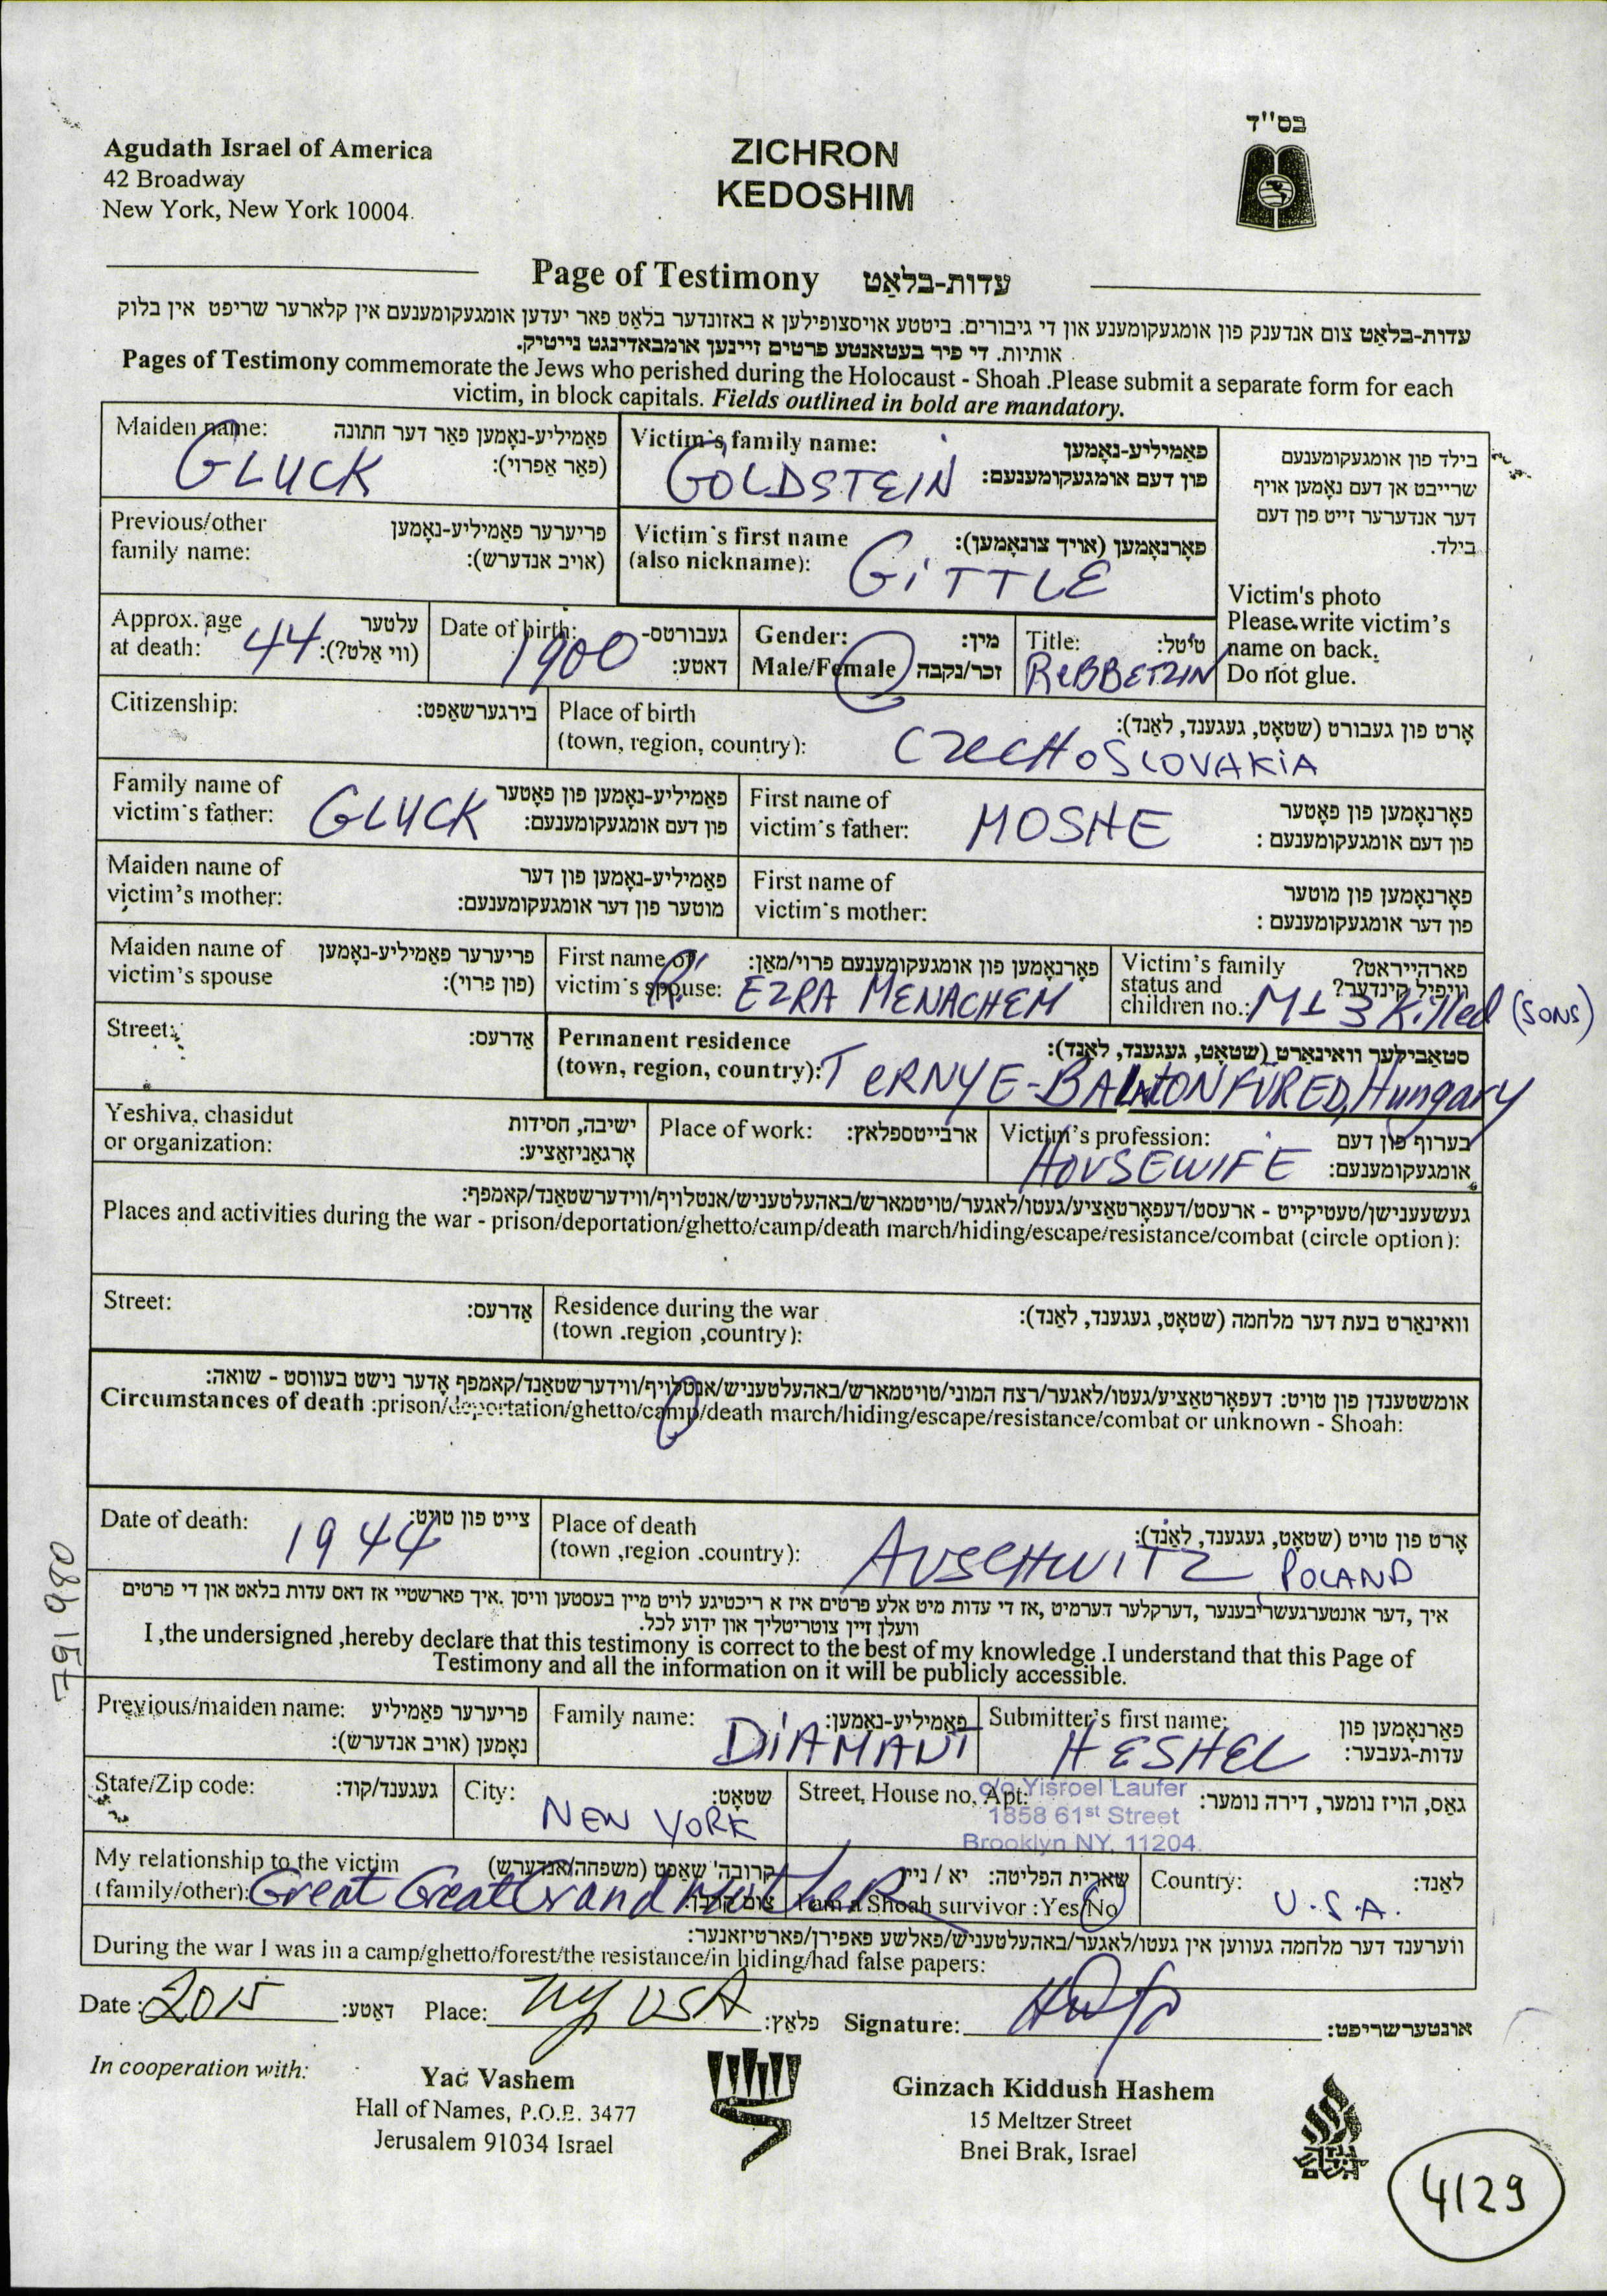 בס"ד
Agudath Israel of America
42 Broadway
New York, New York 10004
ZICHRON
KEDOSHIM
Page of Testimony עדות-בלאַט
עדות-בלאַט צום אנדענק פון אומגעקומענע און די גיבורים. ביטטע אויסצופילען א באזונדער בלאַט פאר יעדען אומגעקומענעם אין קלארער שריפט אין בלוק
אותיות. די פיר בעטאנטע פרטים זיינען אומבאדינגט נייטיק.
Pages of Testimony commemorate the Jews who perished during the Holocaust - Shoah .Please submit a separate form for each
victim, in block capitals. Fields outlined in bold are mandatory.
Maiden name: פאַמיליע-נאָמען פאַר דער חתונה
(פאַר אַפרוי):
GLUCK
Victim's family name: פאַמיליע-נאָמען
פון דעם אומגעקומענעם:
GOLDSTEIN
בילד פון אומגעקומענעם
שרייבט אן דעם נאָמען אויף
דער אנדערער זייט פון דעם
בילד.
Victim's photo
Please write victim's
name on back.
Do not glue.
Previous/other פריערער פאַמיליע-נאָמען
family name: (אויב אנדערש):
Victim's first name פאָרנאָמען (אויך צונאָמען):
(also nickname): GITTLE
Approx. age עלטער
at death: 44 (ווי אַלט?):
Date of birth: געבורטס-
1900 דאַטע:
Gender: מין:
Male/Female זכר/נקבה
Title: טיטל:
REBBETZIN
Citizenship: בירגערשאַפט:
Place of birth אָרט פון געבורט (שטאָט, געגענד, לאַנד):
(town, region, country): CZECHOSLOVAKIA
Family name of פאַמיליע-נאָמען פון פאָטער
victim's father: GLUCK פון דעם אומגעקומענעם:
First name of פאָרנאָמען פון פאָטער
victim's father: MOSHE פון דעם אומגעקומענעם :
Maiden name of פאַמיליע-נאָמען פון דער
victim's mother: מוטער פון דער אומגעקומענעם:
First name of פאָרנאָמען פון מוטער
victim's mother: פון דער אומגעקומענעם :
Maiden name of פריערער פאַמיליע-נאָמען
victim's spouse (פון פרוי):
First name of פאָרנאָמען פון אומגעקומענעם פרוי/מאַן:
victim's spouse: R' EZRA MENACHEM
Victim's family פארהייראט?
status and וויפיל קינדער?
children no.: M+ 3 Killed (SONS)
Street: אַדרעס:
Permanent residence סטאַבילער וואוינאָרט (שטאָט, געגענד, לאַנד):
(town, region, country): TERNYE-BALATONFÜRED, Hungary
Yeshiva, chasidut ישיבה, חסידות
or organization: אָרגאַניזאַציע:
Place of work: ארבייטספלאץ:
Victim's profession: בערוף פון דעם
HOUSEWIFE אומגעקומענעם:
געשעענישן/טעטיקייט - ארעסט/דעפאָרטאַציע/געטו/לאגער/טויטמארש/באהעלטעניש/אנטלויף/ווידערשטאַנד/קאמפף:
Places and activities during the war - prison/deportation/ghetto/camp/death march/hiding/escape/resistance/combat (circle option):
Street: אַדרעס:
Residence during the war וואוינאָרט בעת דער מלחמה (שטאָט, געגענד, לאַנד):
(town .region ,country):
אומשטענדן פון טויט: דעפאָרטאַציע/געטו/לאגער/רצח המוני/טויטמארש/באהעלטעניש/אנטלויף/ווידערשטאַנד/קאמפף אָדער נישט בעוואוסט - שואה:
Circumstances of death :prison/deportation/ghetto/camp/death march/hiding/escape/resistance/combat or unknown - Shoah:
Date of death: צייט פון טויט:
1944
Place of death אָרט פון טויט (שטאָט, געגענד, לאַנד):
(town ,region .country): AUSCHWITZ, POLAND
איך ,דער אונטערגעשריבענער ,דערקלער דערמיט ,אז די עדות מיט אלע פרטים איז א ריכטיגע לויט מיין בעסטען וויסן .איך פארשטיי אז דאס עדות בלאט און די פרטים
וועלן זיין צוטריטליך און ידוע לכל.
I ,the undersigned ,hereby declare that this testimony is correct to the best of my knowledge .I understand that this Page of
Testimony and all the information on it will be publicly accessible.
Previous/maiden name: פריערער פאַמיליע
נאָמען (אויב אנדערש):
Family name: פאַמיליע-נאָמען:
DIAMANT
Submitter's first name: פאָרנאָמען פון
HESHEL עדות-געבער:
State/Zip code: געגענד/קוד:
City: שטאָט:
NEW YORK
Street, House no, Apt: גאס, הויז נומער, דירה נומער:
c/o Yisroel Laufer
1858 61st Street
Brooklyn NY, 11204
My relationship to the victim קרובה'שאַפט (משפחה/אנדערש)
(family/other): Great Great Grand Mother
שארית הפליטה: יא / ניין
I am a Shoah survivor : Yes/No
Country: לאַנד:
U.S.A.
ווערענד דער מלחמה געווען אין געטו/לאגער/באהעלטעניש/פאלשע פאפירן/פארטיזאנער:
During the war I was in a camp/ghetto/forest/the resistance/in hiding/had false papers:
Date : 2015 דאַטע: Place: NY USA פלאַץ: Signature: אונטערשריפט:
In cooperation with:
Yad Vashem
Hall of Names, P.O.B. 3477
Jerusalem 91034 Israel
Ginzach Kiddush Hashem
15 Meltzer Street
Bnei Brak, Israel
4129
791980